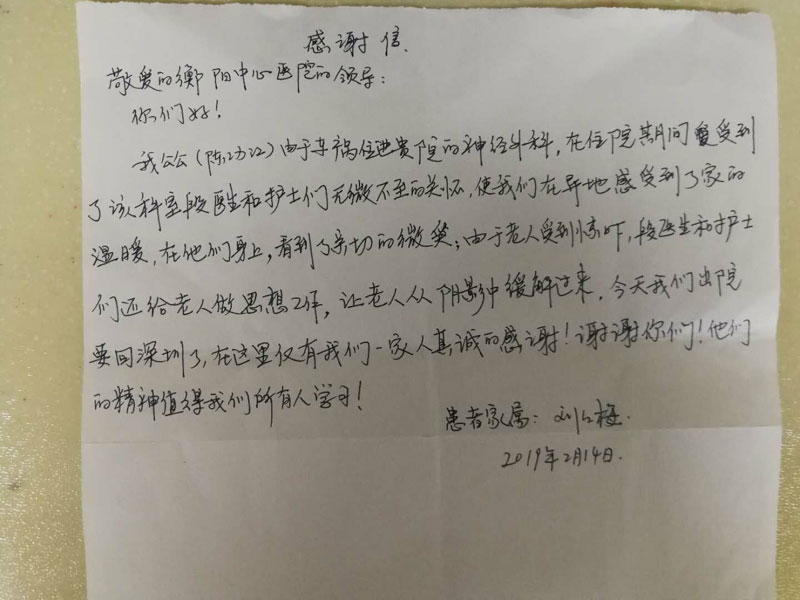 感谢信.
敬爱的衡阳中心医院的领导:
你们好!
我公公(陈功江)由于车祸住进贵院的神经外科,在住院期间受到
了该科室段医生和护士们无微不至的关怀,使我们在异地感受到了家的
温暖,在他们身上,看到了亲切的微笑;由于老人受到惊吓,段医生和护士
们还给老人做思想工作,让老人从阴影中缓解过来,今天我们出院
要回深圳了,在这里仅有我们一家人真诚的感谢!谢谢你们!他们
的精神值得我们所有人学习!
患者家属:刘红梅.
2019年2月14日.